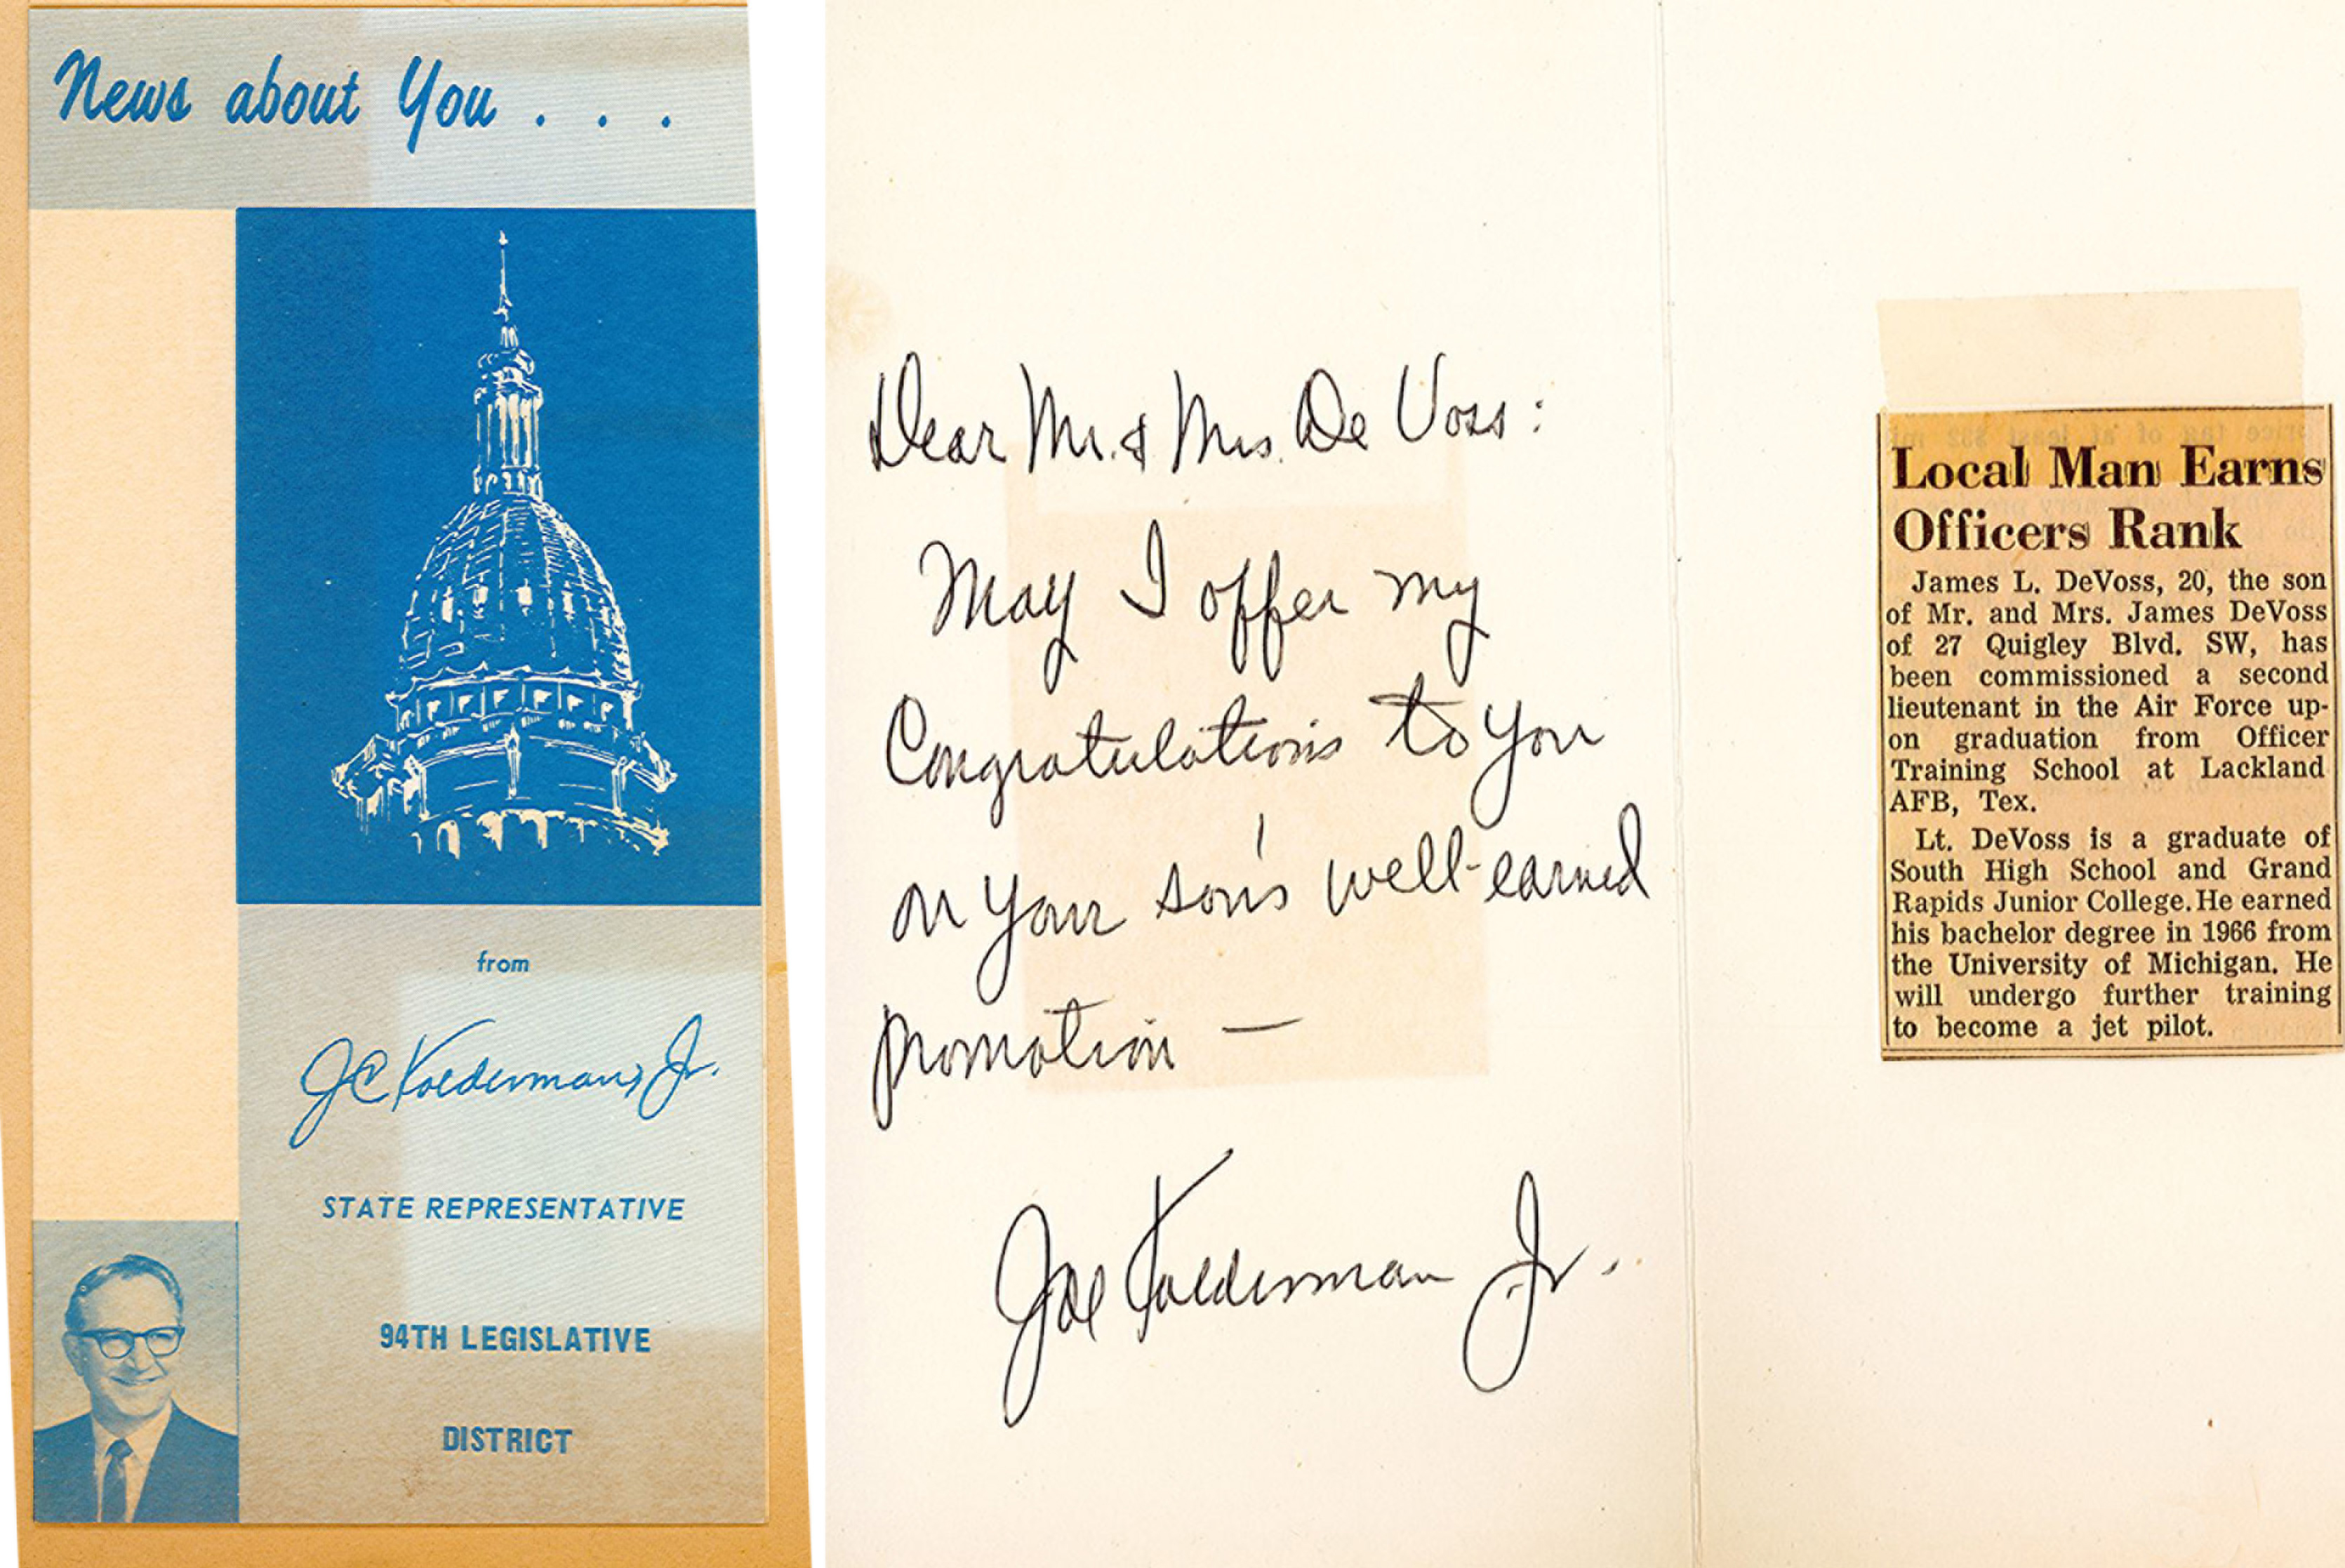 News about You . . .
from
JC Kolderman, Jr.
STATE REPRESENTATIVE
94TH LEGISLATIVE
DISTRICT
Dear Mr. & Mrs. De Voss:
May I offer my
Congratulations to you
on your son's well-earned
promotion —
Joe Kolderman Jr.
Local Man Earns
Officers Rank
James L. DeVoss, 20, the son
of Mr. and Mrs. James DeVoss
of 27 Quigley Blvd. SW, has
been commissioned a second
lieutenant in the Air Force up-
on graduation from Officer
Training School at Lackland
AFB, Tex.
Lt. DeVoss is a graduate of
South High School and Grand
Rapids Junior College. He earned
his bachelor degree in 1966 from
the University of Michigan. He
will undergo further training
to become a jet pilot.